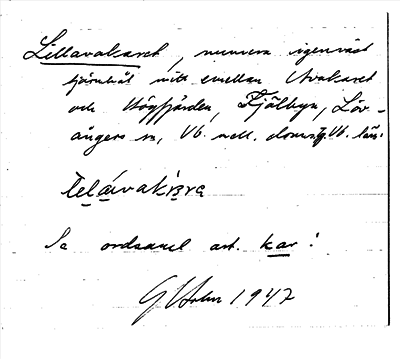 Lillavakaret, numera igenväxt
tjärnhål mitt emellan Avakaret
och Högfjärden, Fjälbyn, Löv-
ångers sn, Vb. n:a domsg. Vb. län.
lelávakɩrə
Se ordsaml. art. kar:
G Holm 1947